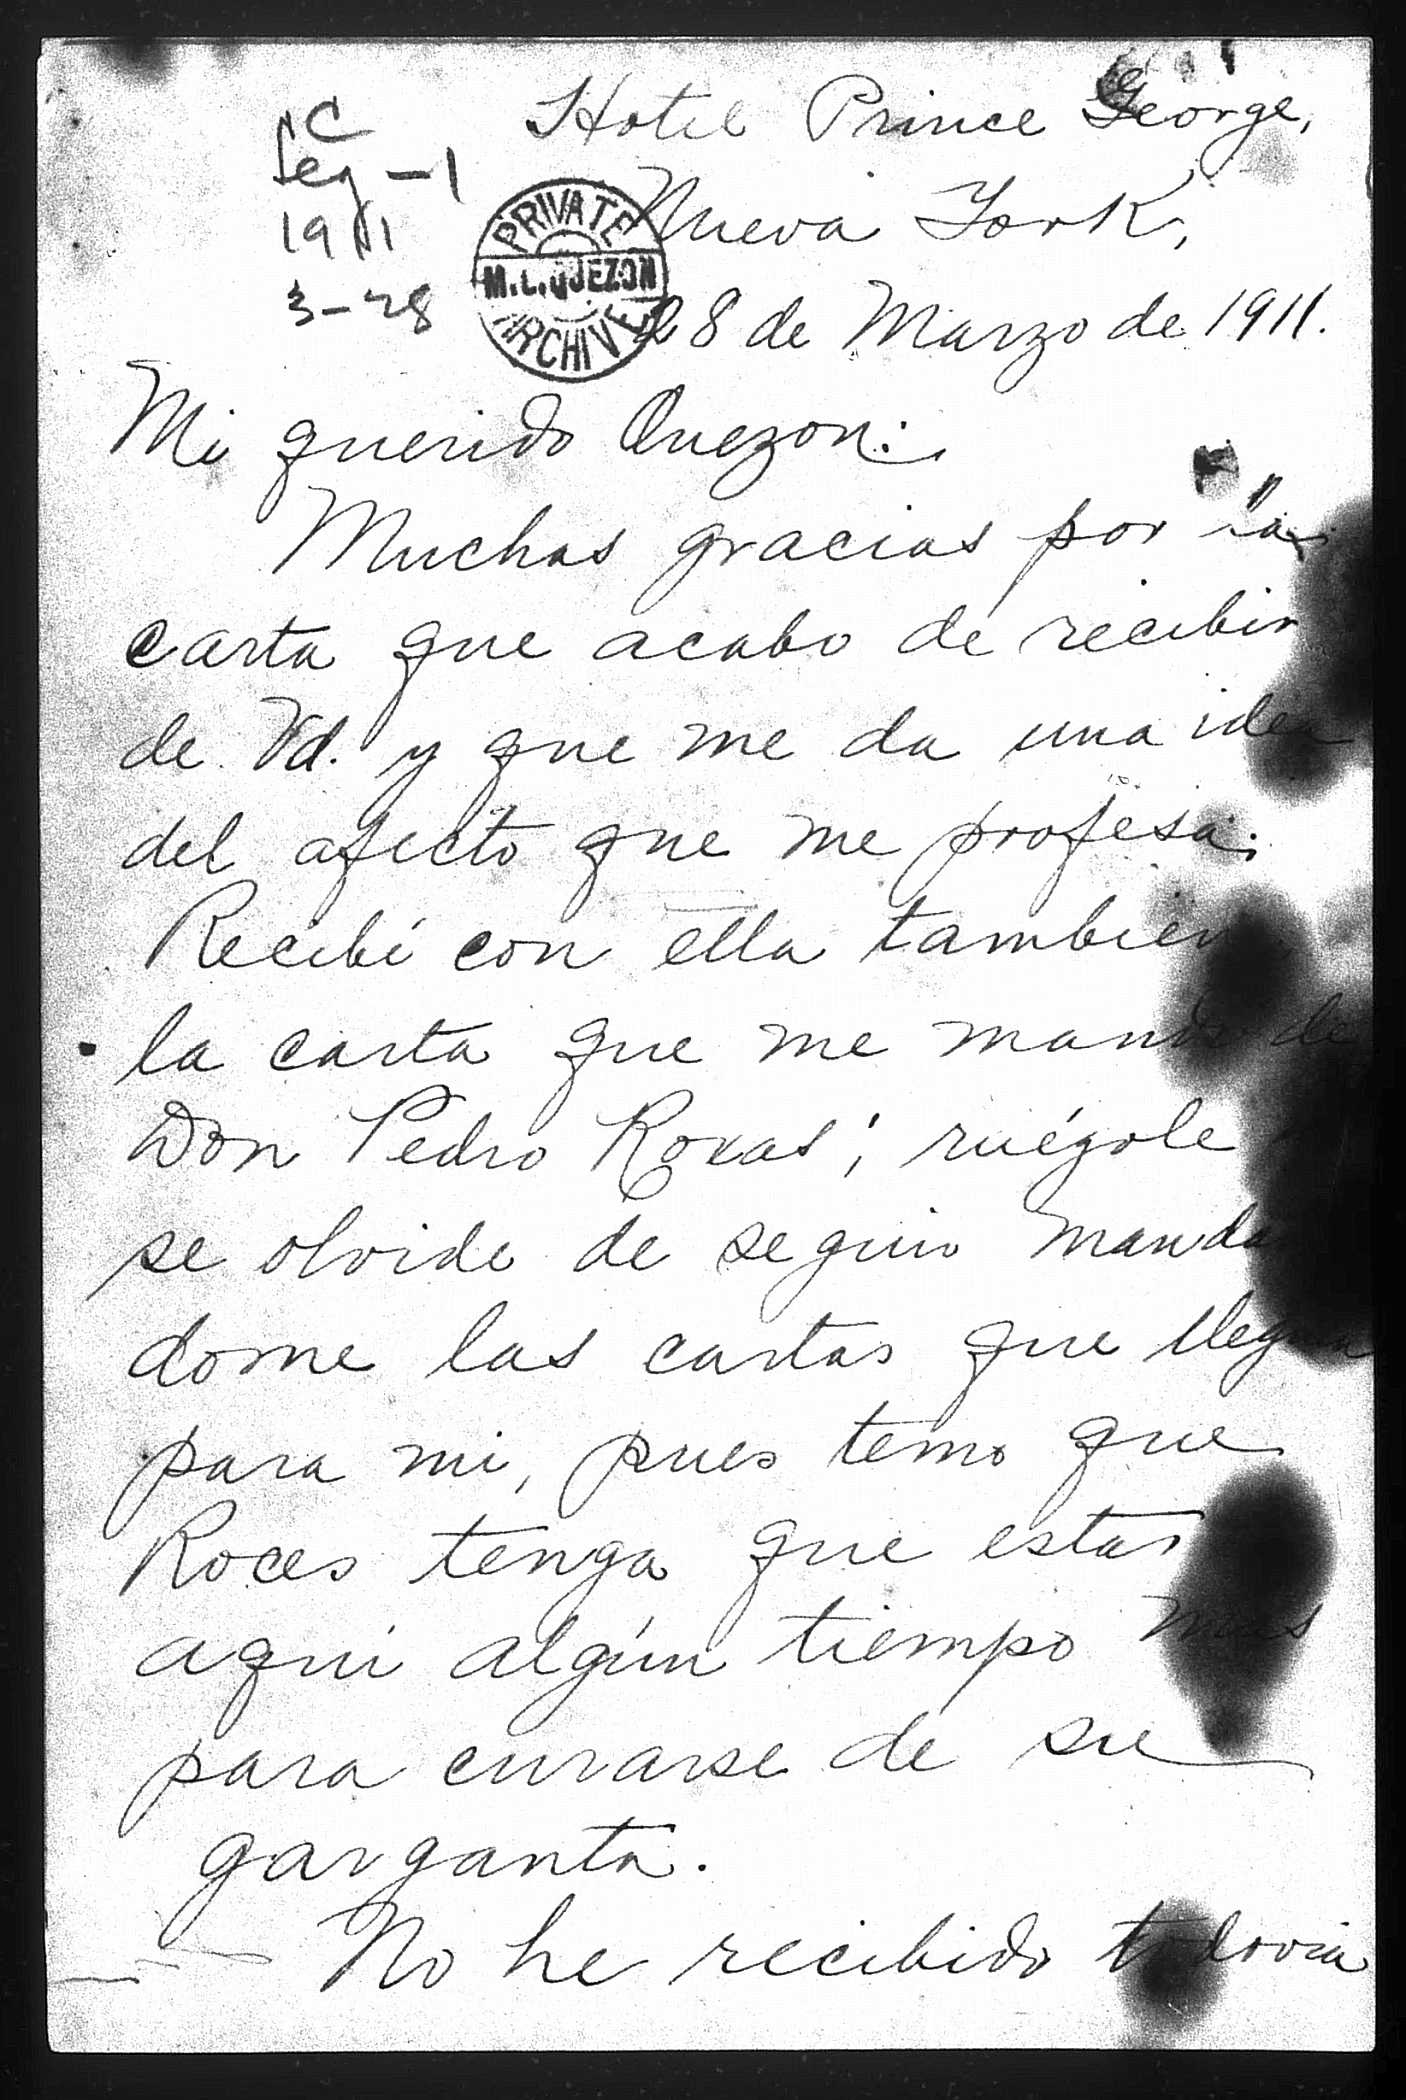 C
Leg - 1
1911
3-28
PRIVATE
M.L. QUEZON
ARCHIVE
Hotel Prince George,
Nueva York,
28 de Marzo de 1911.
Mi querido Quezon:
Muchas gracias por la
carta que acabo de recibir
de Vd. y que me da una idea
del afecto que me profesa.
Recibí con ella tambien
la carta que me mandó de
Don Pedro Roxas; ruégole
se olvide de seguir manda
dome las cartas que llegua
para mi, pues temo que
Roces tenga que estar
aqui algún tiempo mas
para curarse de su
garganta.
No he recibido todovia